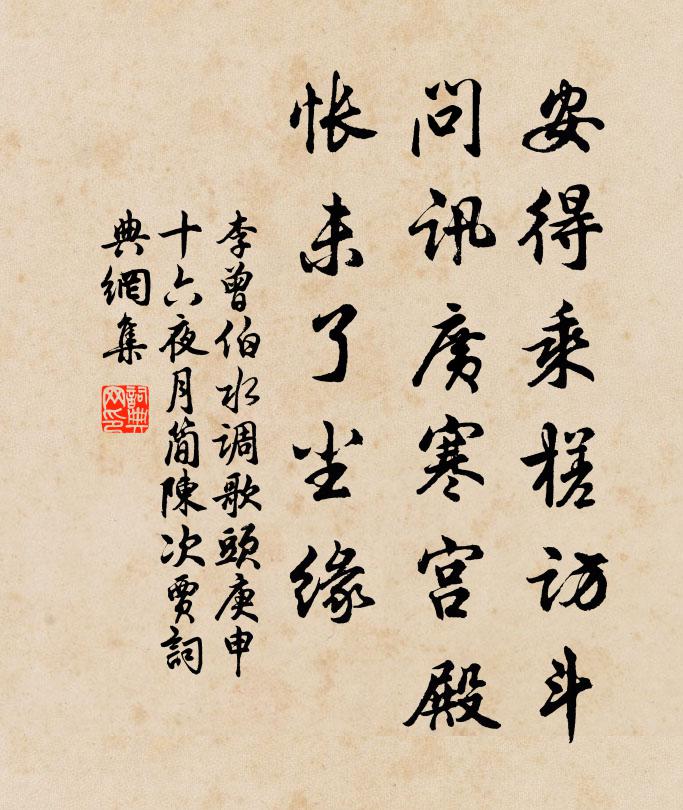 安得乘槎访斗
问讯广寒宫殿
怅未了尘缘
李曾伯水调歌頭庚申
十六夜月简陳次贾詞
典網集
詞典
网印